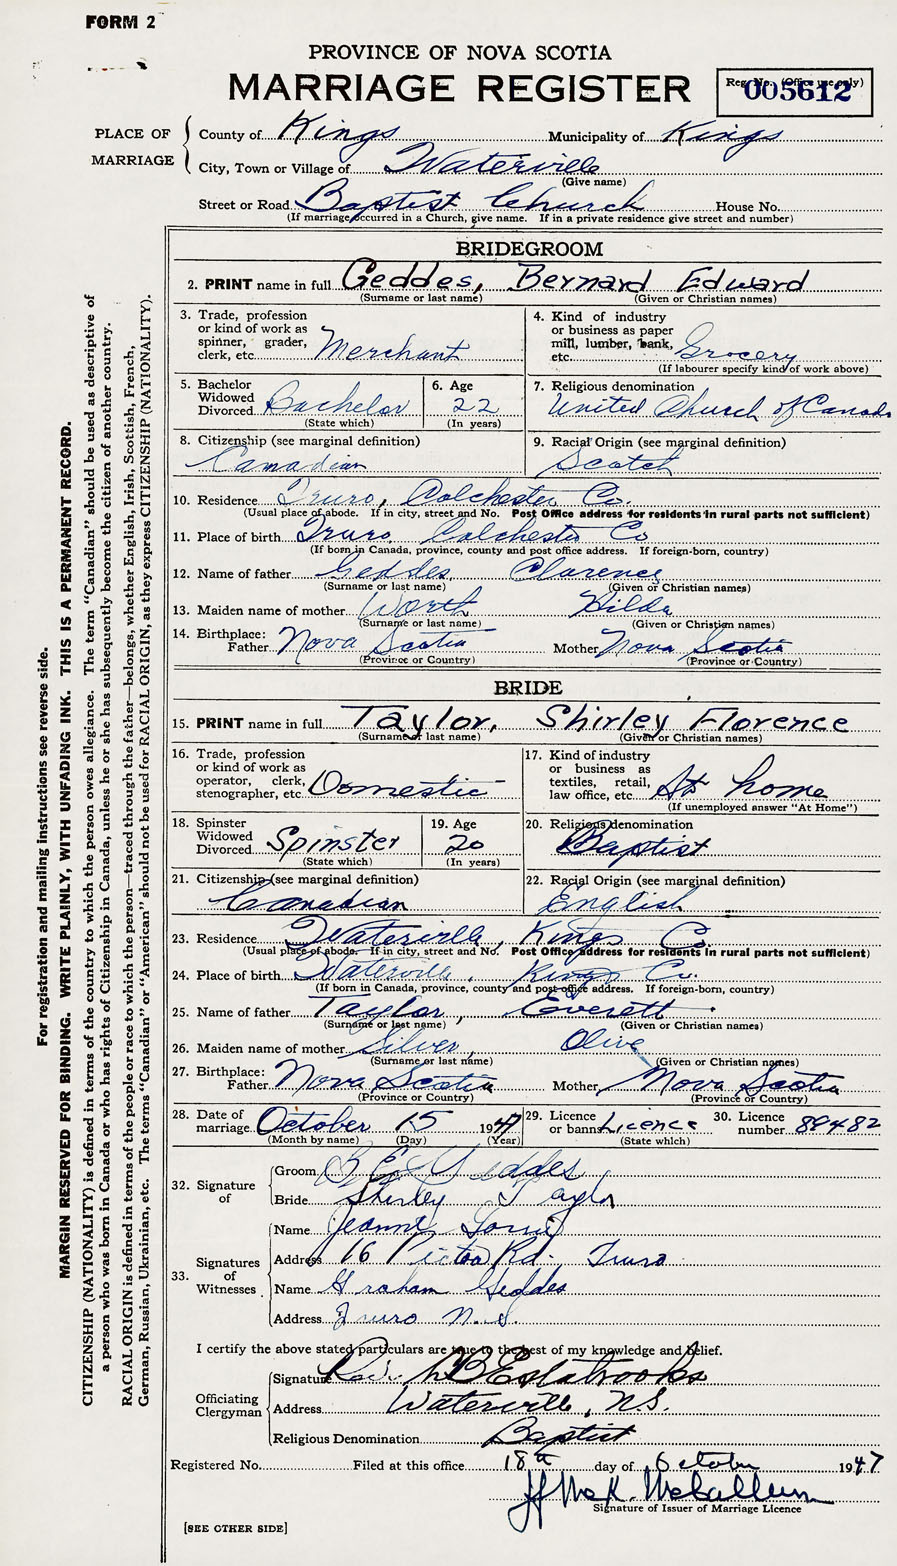 FORM 2
PROVINCE OF NOVA SCOTIA
MARRIAGE REGISTER
Reg. No. (Office use only)
005612
PLACE OF MARRIAGE
County of Kings Municipality of Kings
City, Town or Village of Waterville
(Give name)
Street or Road Baptist Church House No.
(If marriage occurred in a Church, give name. If in a private residence give street and number)
BRIDEGROOM
2. PRINT name in full Geddes, Bernard Edward
(Surname or last name) (Given or Christian names)
3. Trade, profession or kind of work as spinner, grader, clerk, etc. Merchant
4. Kind of industry or business as paper mill, lumber, bank, etc. Grocery
(If labourer specify kind of work above)
5. Bachelor Widowed Divorced Bachelor
(State which)
6. Age 22
(In years)
7. Religious denomination
United Church of Canada
8. Citizenship (see marginal definition)
Canadian
9. Racial Origin (see marginal definition)
Scotch
10. Residence Truro, Colchester Co.
(Usual place of abode. If in city, street and No. Post Office address for residents in rural parts not sufficient)
11. Place of birth Truro Colchester Co
(If born in Canada, province, county and post office address. If foreign-born, country)
12. Name of father Geddes Clarence
(Surname or last name) (Given or Christian names)
13. Maiden name of mother Worth Hilda
(Surname or last name) (Given or Christian names)
14. Birthplace: Father Nova Scotia Mother Nova Scotia
(Province or Country) (Province or Country)
BRIDE
15. PRINT name in full Taylor, Shirley Florence
(Surname or last name) (Given or Christian names)
16. Trade, profession or kind of work as operator, clerk, stenographer, etc. Domestic
17. Kind of industry or business as textiles, retail, law office, etc. At home
(If unemployed answer "At Home")
18. Spinster Widowed Divorced Spinster
(State which)
19. Age 20
(In years)
20. Religious denomination
Baptist
21. Citizenship (see marginal definition)
Canadian
22. Racial Origin (see marginal definition)
English
23. Residence Waterville, Kings Co.
(Usual place of abode. If in city, street and No. Post Office address for residents in rural parts not sufficient)
24. Place of birth Waterville, Kings Co.
(If born in Canada, province, county and post office address. If foreign-born, country)
25. Name of father Taylor, Everett
(Surname or last name) (Given or Christian names)
26. Maiden name of mother Silver, Olive
(Surname or last name) (Given or Christian names)
27. Birthplace: Father Nova Scotia Mother Nova Scotia
(Province or Country) (Province or Country)
28. Date of marriage October 15 1947
(Month by name) (Day) (Year)
29. Licence or banns Licence
(State which)
30. Licence number 89482
32. Signature of
Groom B E Geddes
Bride Shirley Taylor
33. Signatures of Witnesses
Name Jeanne
Address 16 Victoria Rd. Truro
Name Graham Geddes
Address Truro N.S.
I certify the above stated particulars are true to the best of my knowledge and belief.
Officiating Clergyman
Signature Rev. Estabrooks
Address Waterville, N.S.
Religious Denomination Baptist
Registered No. Filed at this office 18th day of October 1947
McCallum
Signature of Issuer of Marriage Licence
[SEE OTHER SIDE]
For registration and mailing instructions see reverse side.
MARGIN RESERVED FOR BINDING. WRITE PLAINLY, WITH UNFADING INK. THIS IS A PERMANENT RECORD.
CITIZENSHIP (NATIONALITY) is defined in terms of the country to which the person owes allegiance. The term "Canadian" should be used as descriptive of
a person who was born in Canada or who has rights of Citizenship in Canada, unless he or she has subsequently become the citizen of another country.
RACIAL ORIGIN is defined in terms of the people or race to which the person—traced through the father—belongs, whether English, Irish, Scottish, French,
German, Russian, Ukrainian, etc. The terms "Canadian" or "American" should not be used for RACIAL ORIGIN, as they express CITIZENSHIP (NATIONALITY).